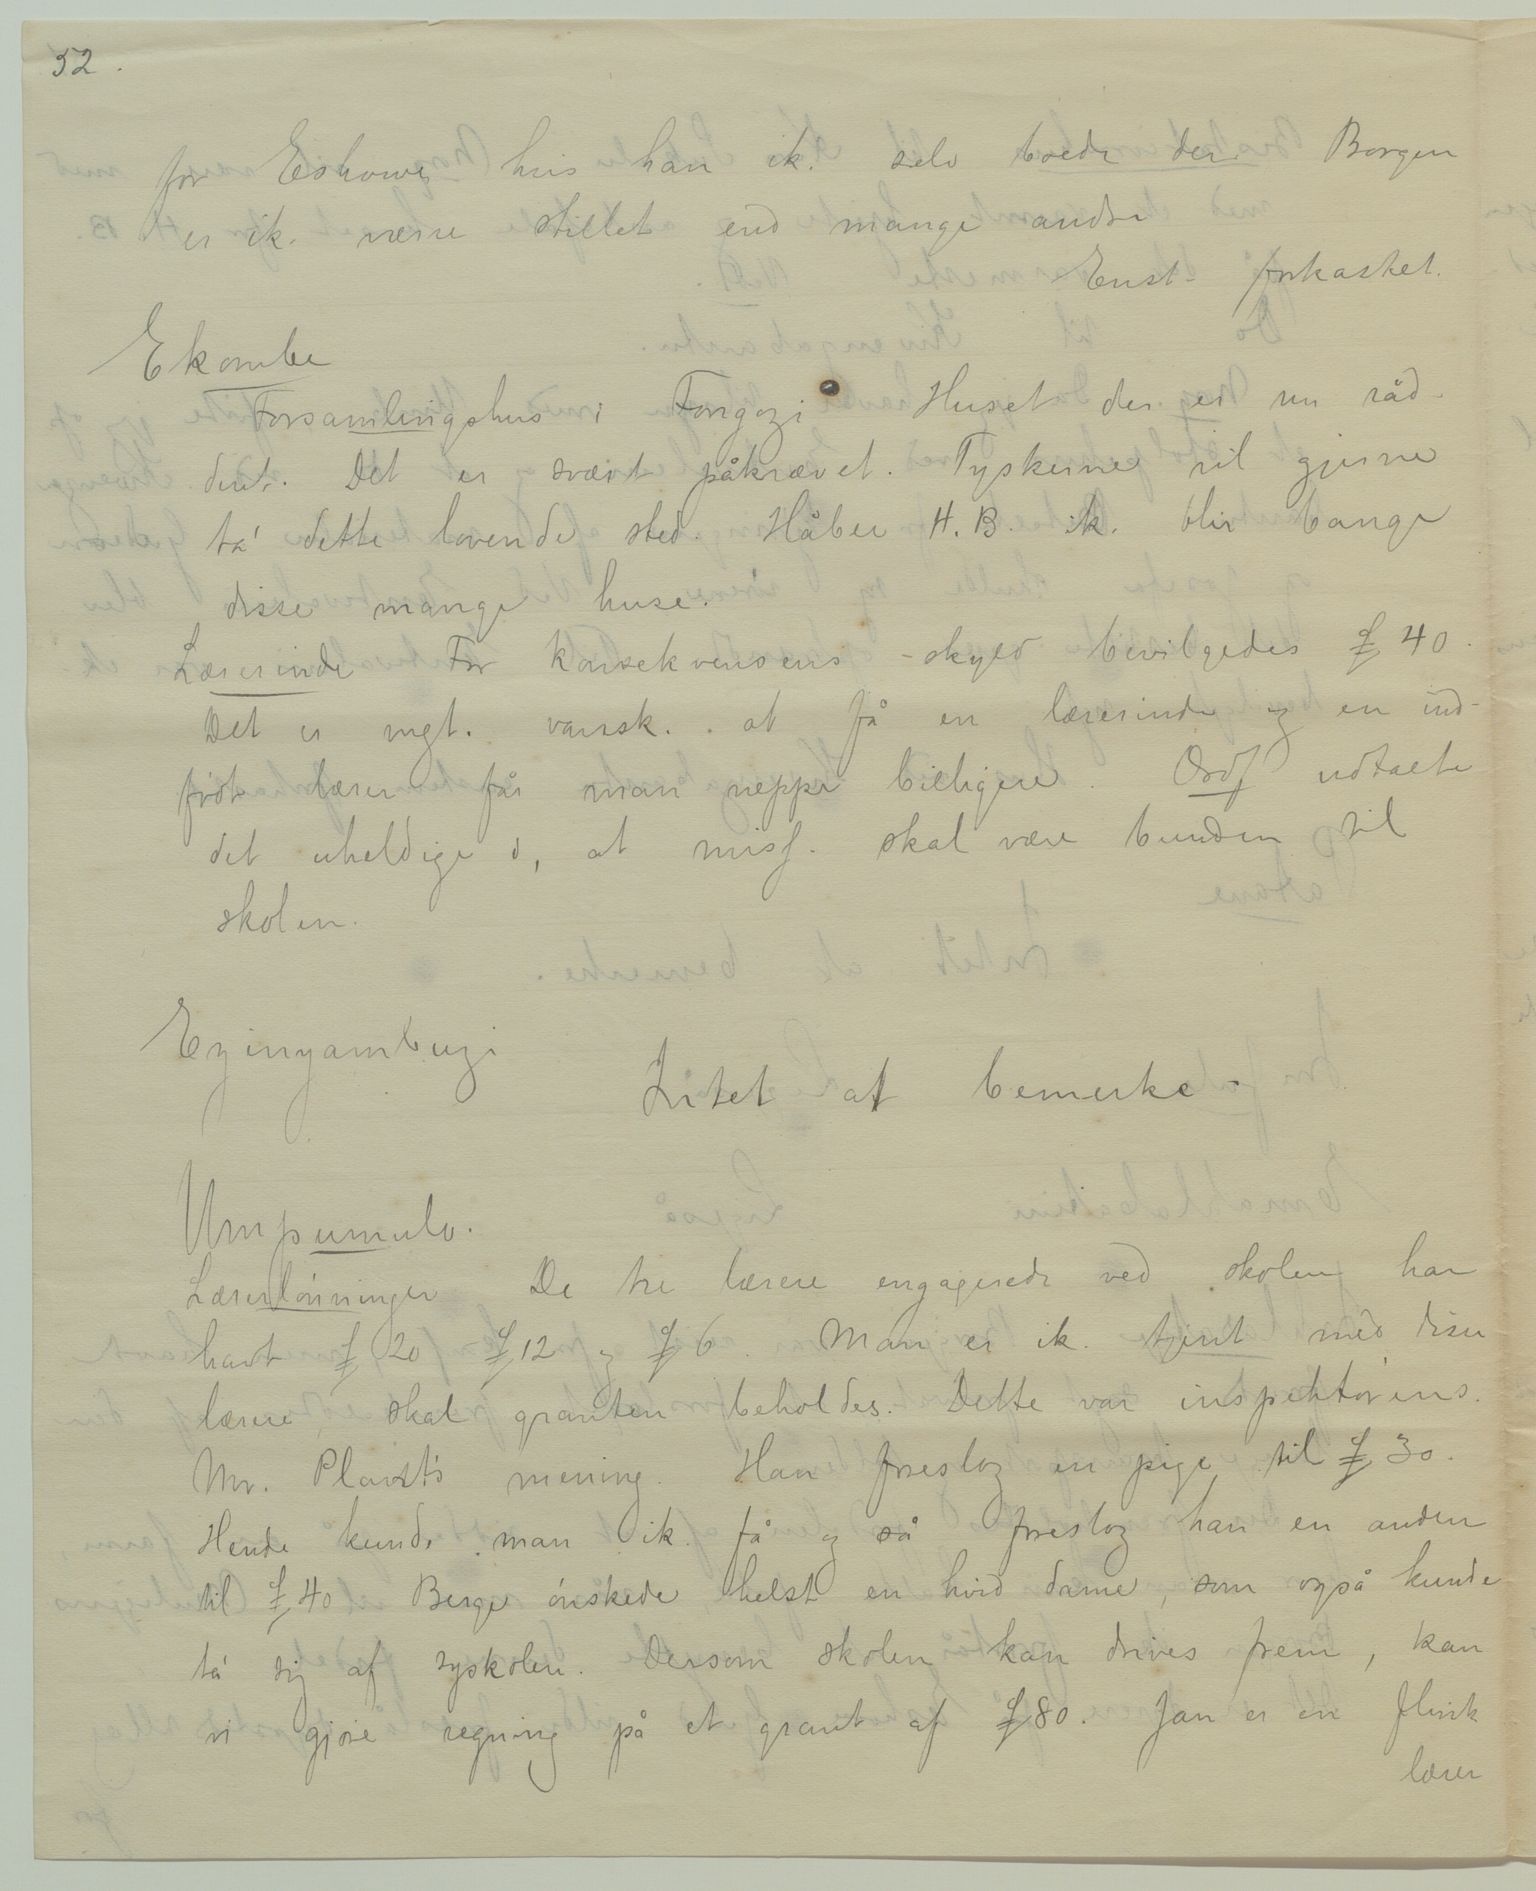 52.
for Eshowe, hvis han ik. selv boede der. Borgen
er ik. værre stillet end mange andre
Enst. forkastet.
Ekombe
Forsamlingshus i Fongozi Huset der er nu råd-
dent. Det er svært påkrævet. Tyskerne vil gjerne
ta' dette lovende sted. Håber H.B. ik. blir bange
disse mange huse.
Lærerinde For konsekvensens skyld bevilgedes £ 40.
Det er mgt. vansk. at få en lærerinde og en ind-
født lærer får man neppe billigere. Ordf udtalte
det uheldige i, at miss. skal være bunden til
skolen.
Ezinyambuzi
Intet at bemerke
Umpumulo.
Lærerlønninger De tre lærere engagerede ved skolen har
havt £ 20 - £ 12 og £ 6. Man er ik. tjent med disse
lærere, skal granten beholdes. Dette var inspektørens.
Mr. Plant's mening. Han foreslog en pige til £ 30.
Hende kunde man ik. få og så foreslog han en anden
til £ 40 Berge ønskede helst en hvid dame, som også kunde
ta' sig af syskolen. Dersom skolen kan drives frem, kan
vi gjøre regning på et grant af £ 80. Jan er en flink
lærer